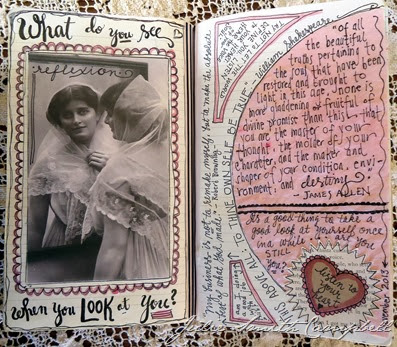 What do you see
reflexion
when you LOOK at You?
My business is not to remake myself, but to make the absolute
best of what God made." - Robert Browning
THIS ABOVE ALL TO THINE OWN SELF BE TRUE" William Shakespeare
"Of all
the beautiful
truths pertaining to
the soul that have been
restored and brought to
light in this age, none is
more gladdening or fruitful of
divine promise than this - that
you are the master of your
thought, the molder of your
character, and the maker and
shaper of your condition, envi-
ronment, and destiny."
- JAMES ALLEN
It's a good thing to take a
good look at yourself once
in a while - are you
STILL
you?
listen to
your
heart
november 2013
Campbell